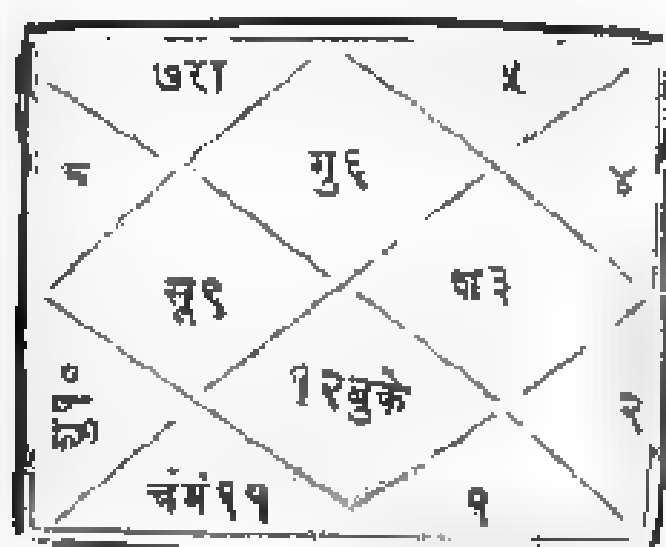 ७रा
५
गु६
४
सू९
श३
शु१०
१२बुके
२
चंमं११
१